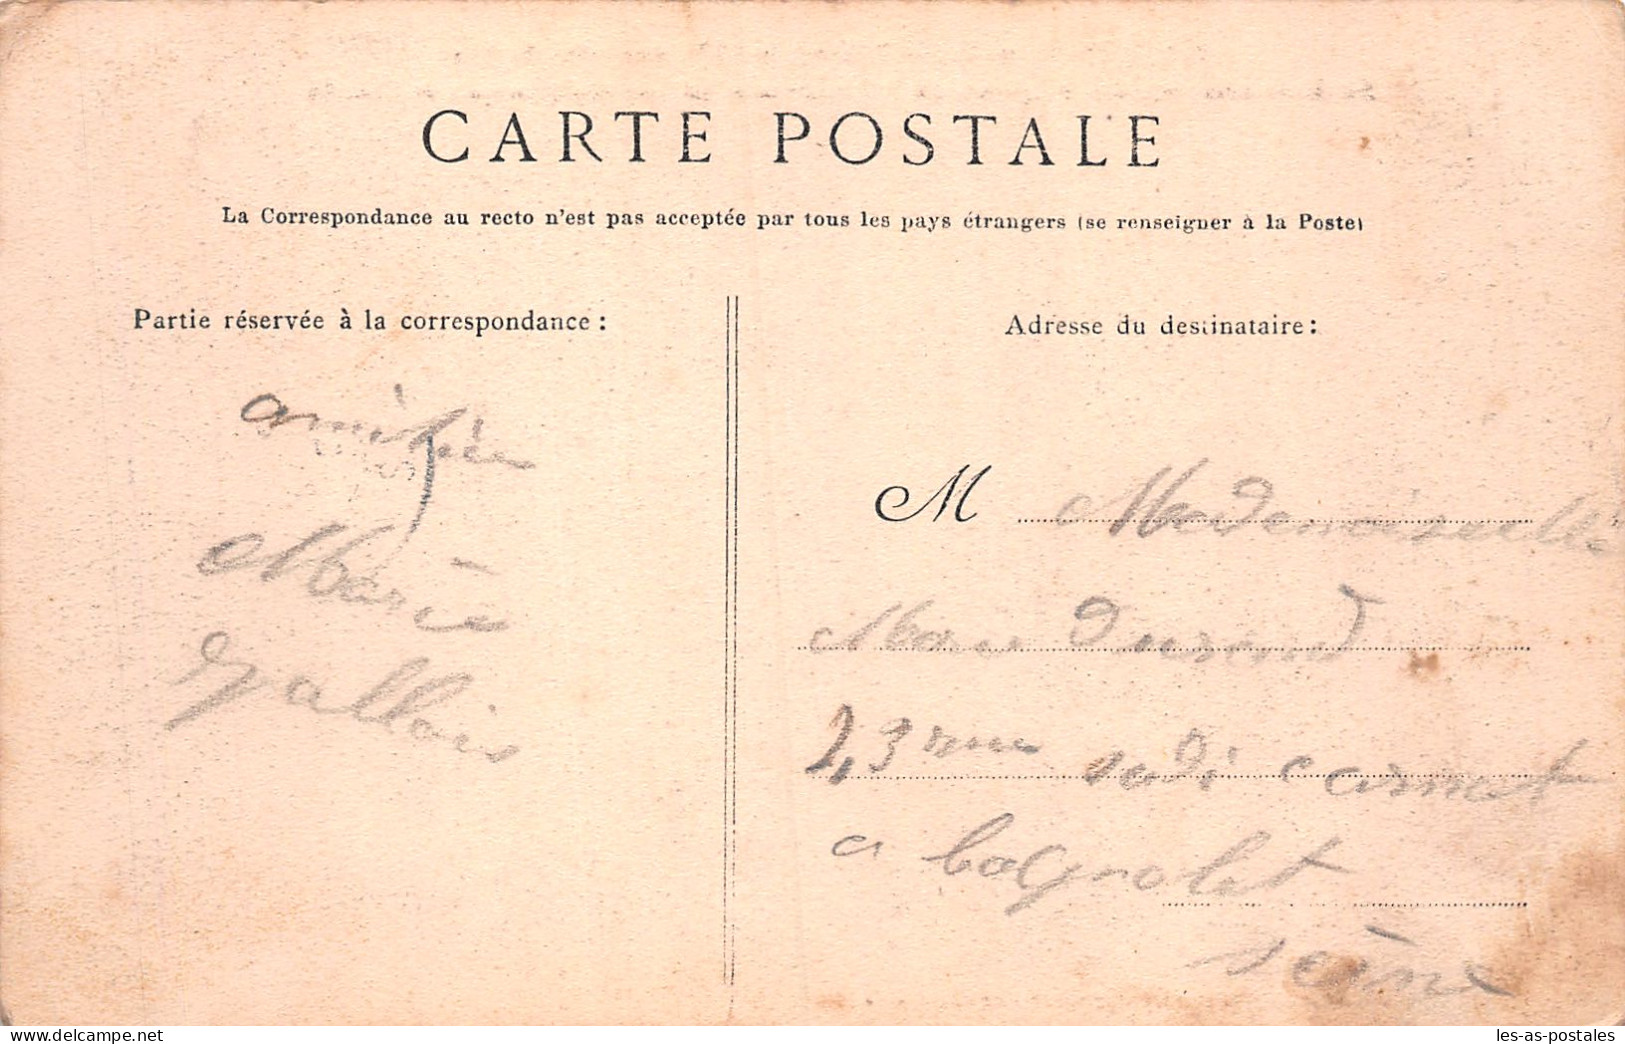 CARTE POSTALE
La Correspondance au recto n'est pas acceptée par tous les pays étrangers (se renseigner à la Poste)
Partie réservée à la correspondance :
amitiée
Marie
Gallois
Adresse du destinataire :
M Mademoiselle
Durand
23 rue sadi carnot
a bagnolet
seine
www.les-as-postales.com
les-as-postales